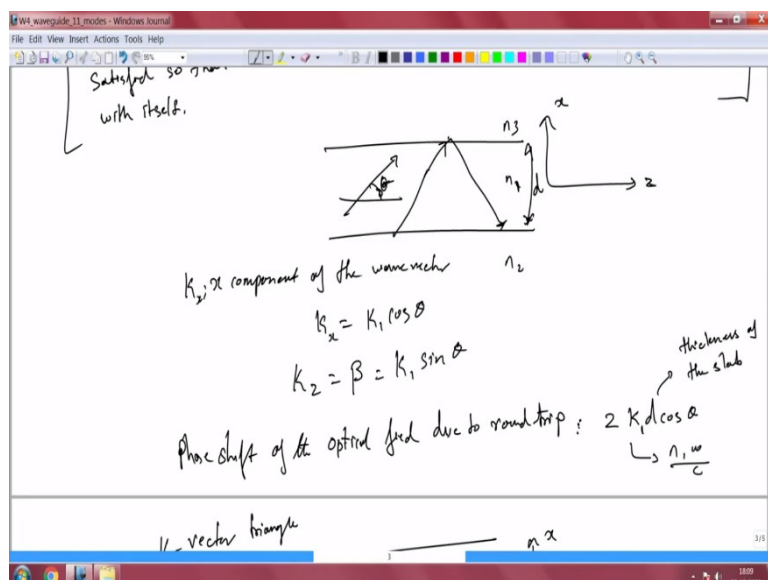 W4_waveguide_11_modes - Windows Journal
File Edit View Insert Actions Tools Help
Satisfied so
with itself.
x
n3
n1
d
θ
z
n2
Kx: x component of the wavevector
Kx = K1 cos θ
Kz = β = K1 sin θ
thickness of
the slab
Phase shift of the optical field due to round trip : 2 K1 d cos θ
n1 ω
c
K-vector triangle
x
3
3/5
18:09